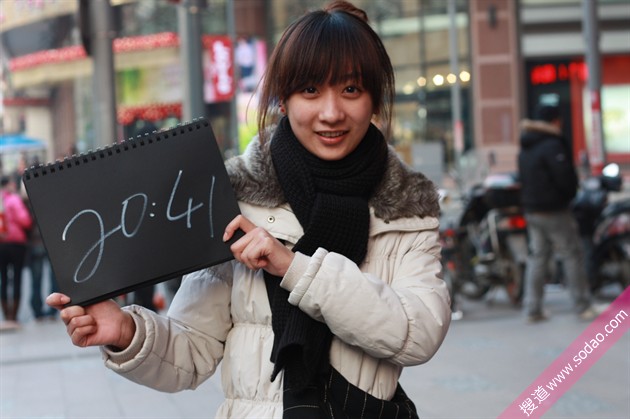 20:41
搜道www.sodao.com